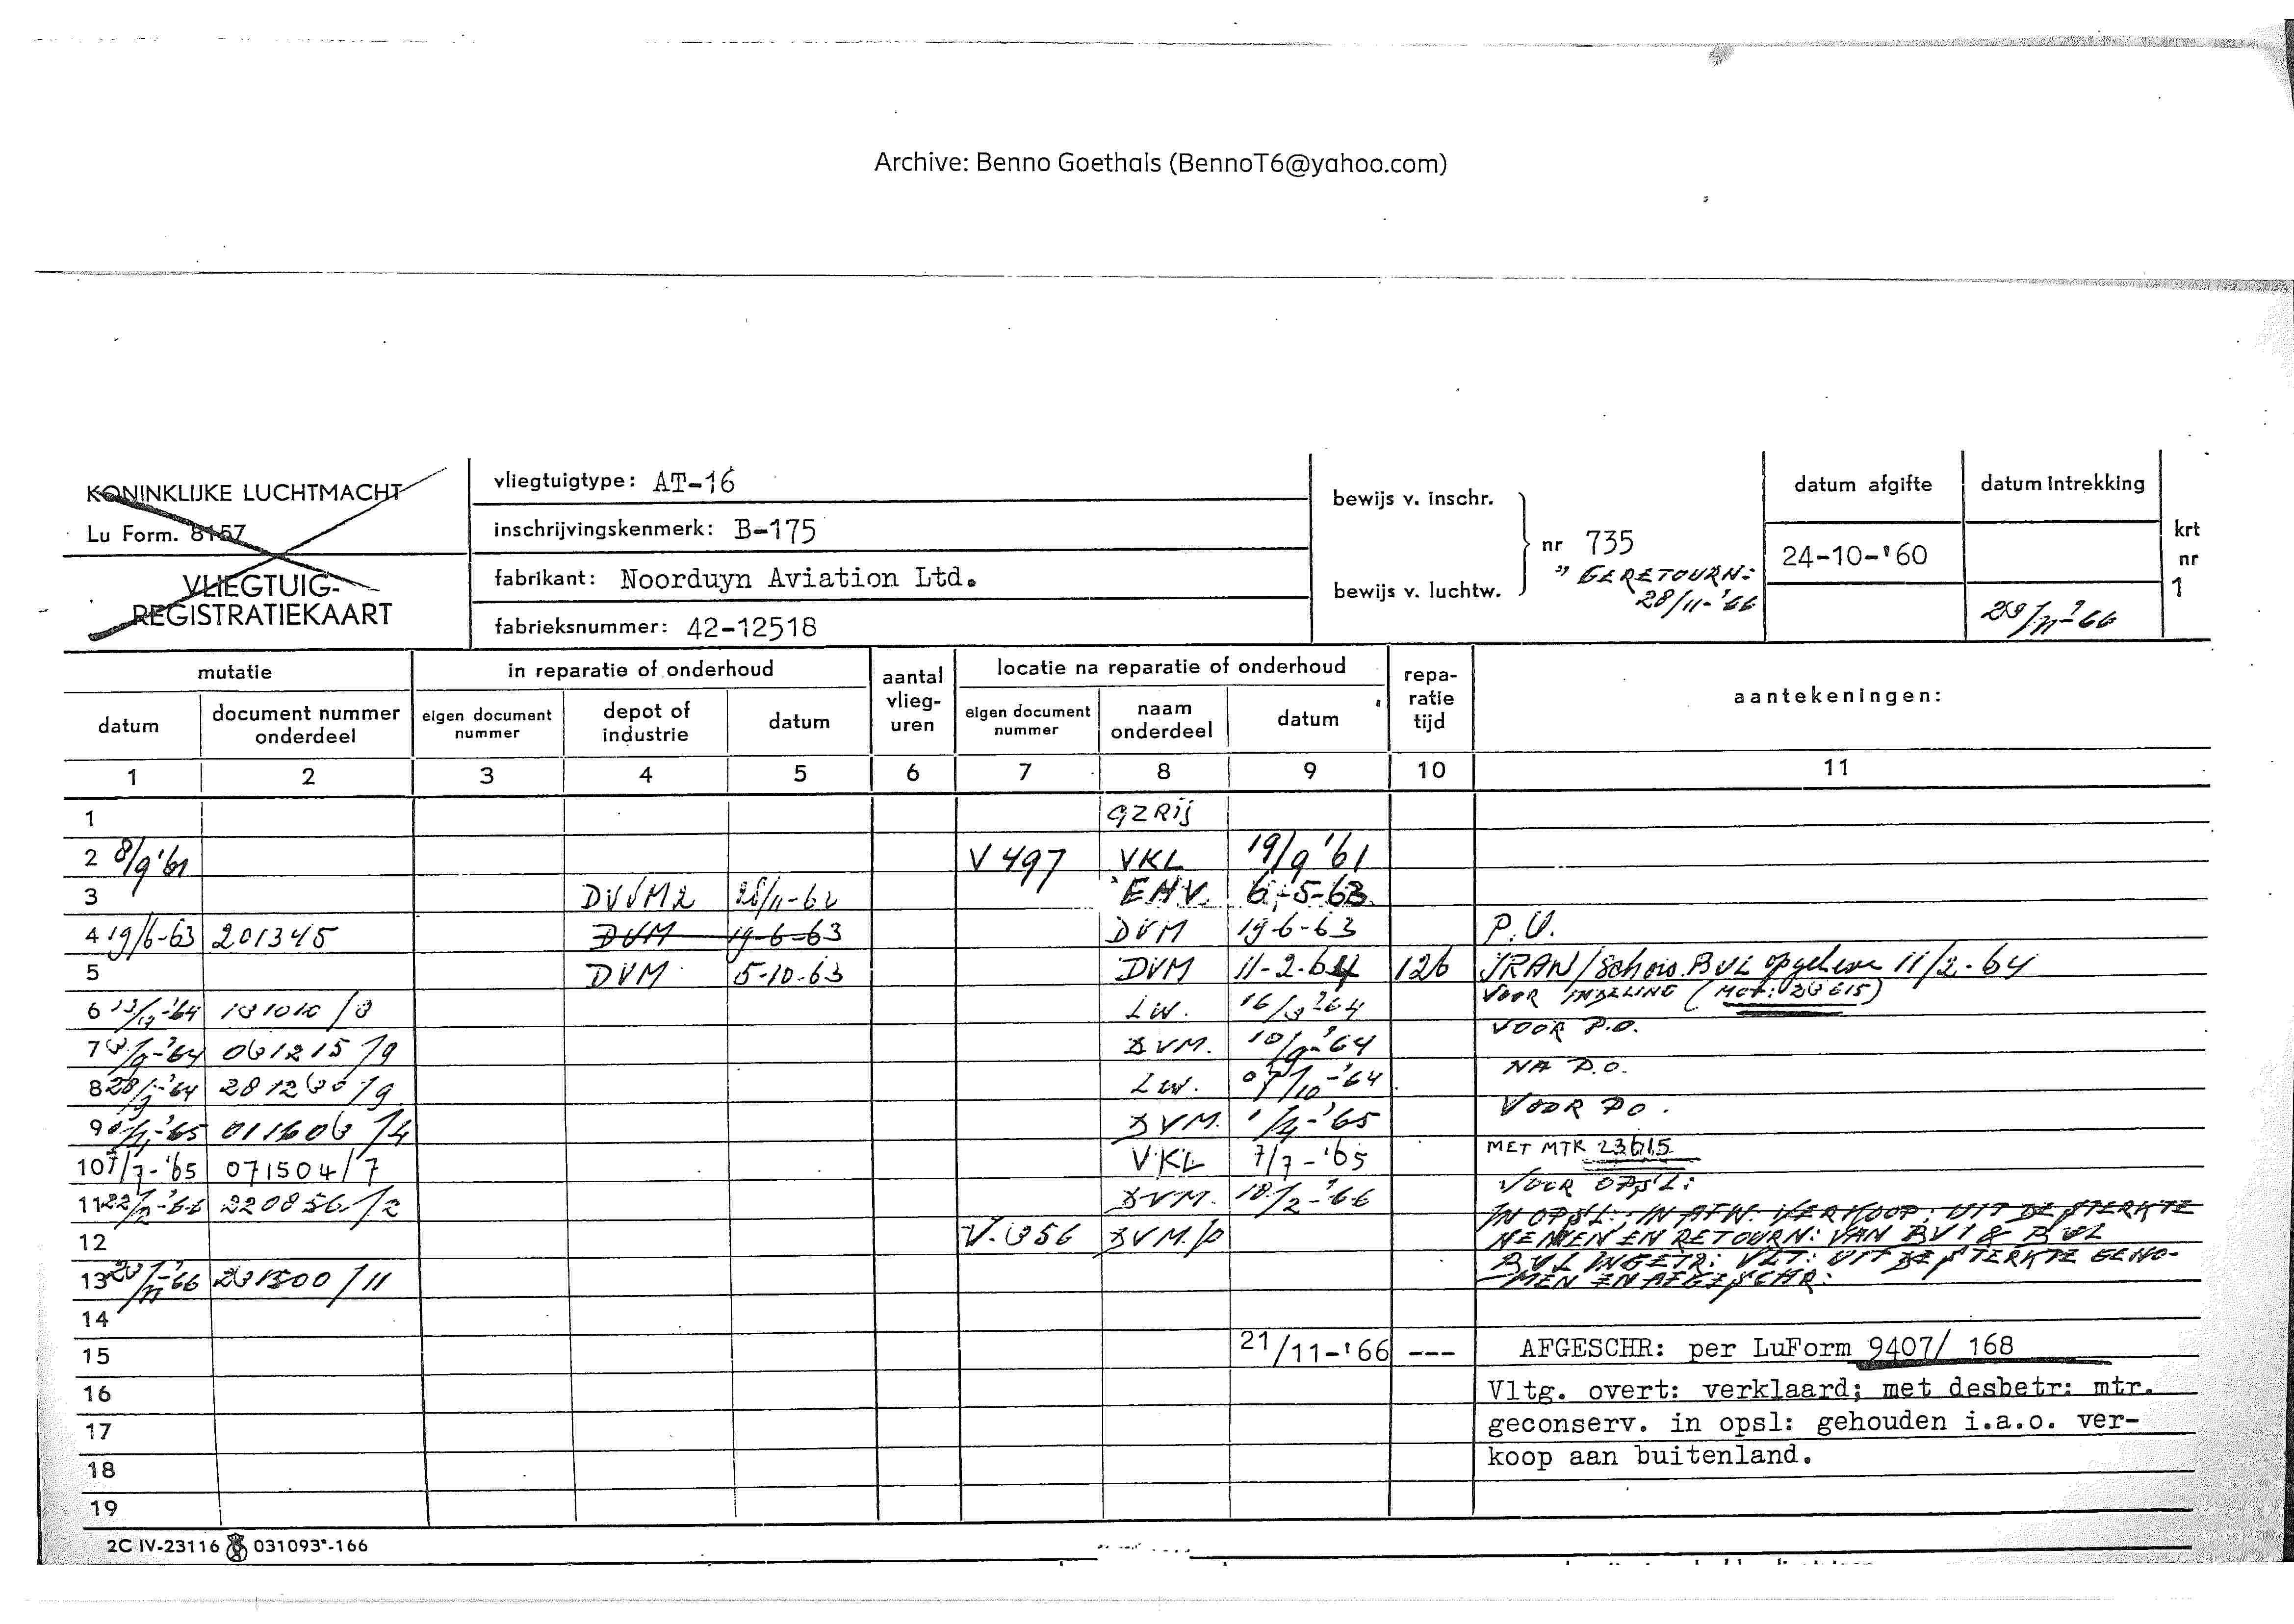 Archive: Benno Goethals (BennoT6@yahoo.com)
KONINKLIJKE LUCHTMACHT
Lu Form. 8157
VLIEGTUIG-
REGISTRATIEKAART
vliegtuigtype: AT-16
inschrijvingskenmerk: B-175
fabrikant: Noorduyn Aviation Ltd.
fabrieksnummer: 42-12518
bewijs v. inschr.
bewijs v. luchtw.
nr 735
" GERETOURN:
28/11-'66
datum afgifte
24-10-'60
datum Intrekking
krt
nr
1
mutatie
in reparatie of onderhoud
aantal
vlieg-
uren
locatie na reparatie of onderhoud
repa-
ratie
tijd
aantekeningen:
datum
document nummer
onderdeel
eigen document
nummer
depot of
industrie
datum
eigen document
nummer
naam
onderdeel
datum
1 2 3 4 5 6 7 8 9 10 11
1 GZRij
2 8/9'61 V 497 VKL 19/9'61
3 DVVM2 EHV. 6-5-63
4 19/6-63 201345 DVM 19-6-63 DVM 19-6-63 P.V.
5 DVM 5-10-63 DVM 11-2-64 126 IRAN/Schors. BVL opgeheven 11/2-64
6 LW. 16/3-'64 VOOR INDELING (Mot: 23615)
7 061215/9 DVM. 10/9-'64 VOOR P.O.
8 28/9-'64 LW. 07/10-'64 NA P.O.
9 DVM. 1/4-'65 VOOR PO.
10 7/7-'65 071504/7 VKL 7/7-'65 MET MTR 23615
11 22/2-'66 220856/2 DVM. 18/2-'66 VOOR OPSL:
IN OPSL: IN AFW. VERKOOP; UIT DE STERKTE
12 V.356 DVM/p NEMEN EN RETOURN: VAN BVI & BVL
BVL INGETR: VLT: UIT DE STERKTE GENO-
13 /11 MEN EN AFGESCHR:
14
15 21/11-'66 --- AFGESCHR: per LuForm 9407/ 168
16 Vltg. overt: verklaard; met desbetr: mtr.
17 geconserv. in opsl: gehouden i.a.o. ver-
18 koop aan buitenland.
19
2C IV-23116 031093*-166